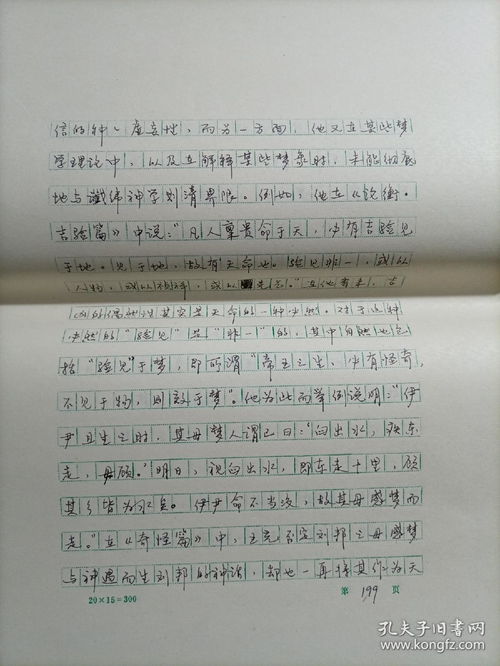 信的种种虚妄性，而另一方面，他又在某些梦
学理论中，以及在解释某些梦象时，未能彻底
地与谶纬神学划清界限。例如，他在《论衡·
吉验篇》中说："凡人禀贵命于天，必有吉验见
于地。见于地，故有天命也。验见非一，或以
人物，或以祯祥，或以光气。"在他看来，吉
凶的偶然性其实是天命的一种必然。对于这种
必然的"验见"是"非一"的，其中自然也包
括"验见"于梦，即所谓"帝王之生，必有怪奇，
不见于物，则效于梦"。他为此而举例说明："伊
尹且生之时，其母梦人谓己曰：'臼出水，疾东
走，毋顾。'明日，视臼出水，即东走十里，顾
其乡皆为水矣。伊尹命不当没，故其母感梦而
走。"在《奇怪篇》中，王充否定刘邦之母感梦
与神遇而生刘邦的神话，却也一再将其作为天
20×15=300
第 199 页
孔夫子旧书网
kongfz.com